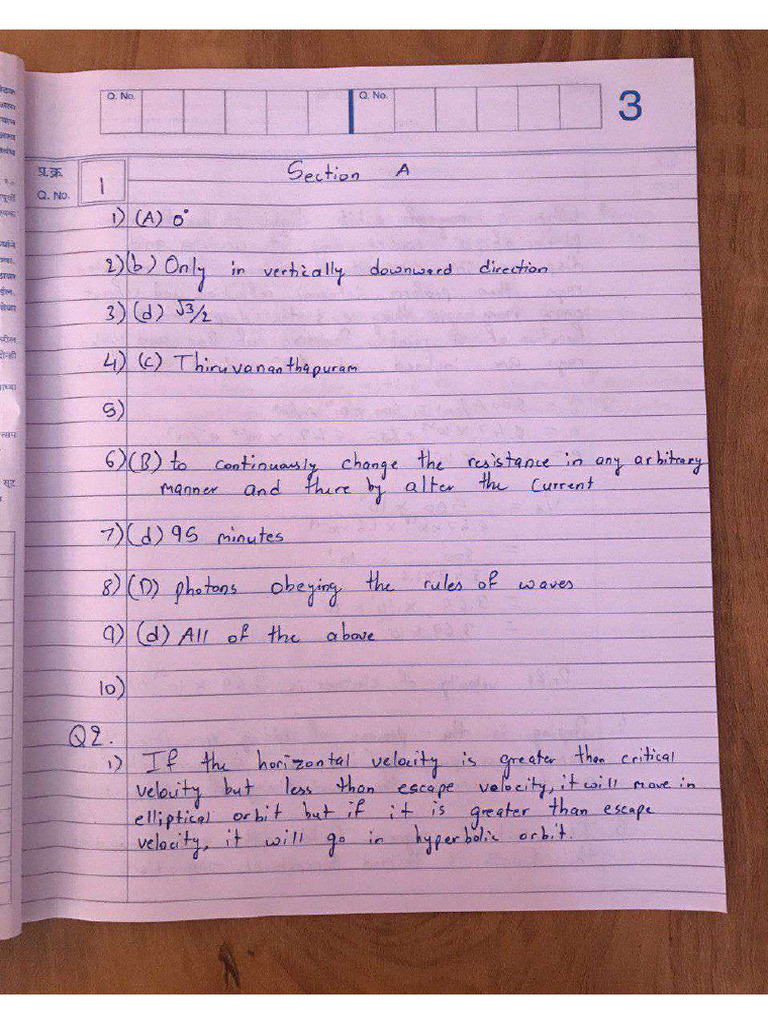 Q. No. Q. No. 3
प्र.क्र.
Q. No. 1 Section A
1) (A) 0°
2) (b) Only in vertically downward direction
3) (d) √3/2
4) (C) Thiruvananthapuram
5)
6) (B) to continuously change the resistance in any arbitrary
manner and there by alter the current
7) (d) 95 minutes
8) (D) photons obeying the rules of waves
9) (d) All of the above
10)
Q2.
1) If the horizontal velocity is greater than critical
velocity but less than escape velocity, it will move in
elliptical orbit but if it is greater than escape
velocity, it will go in hyperbolic orbit.